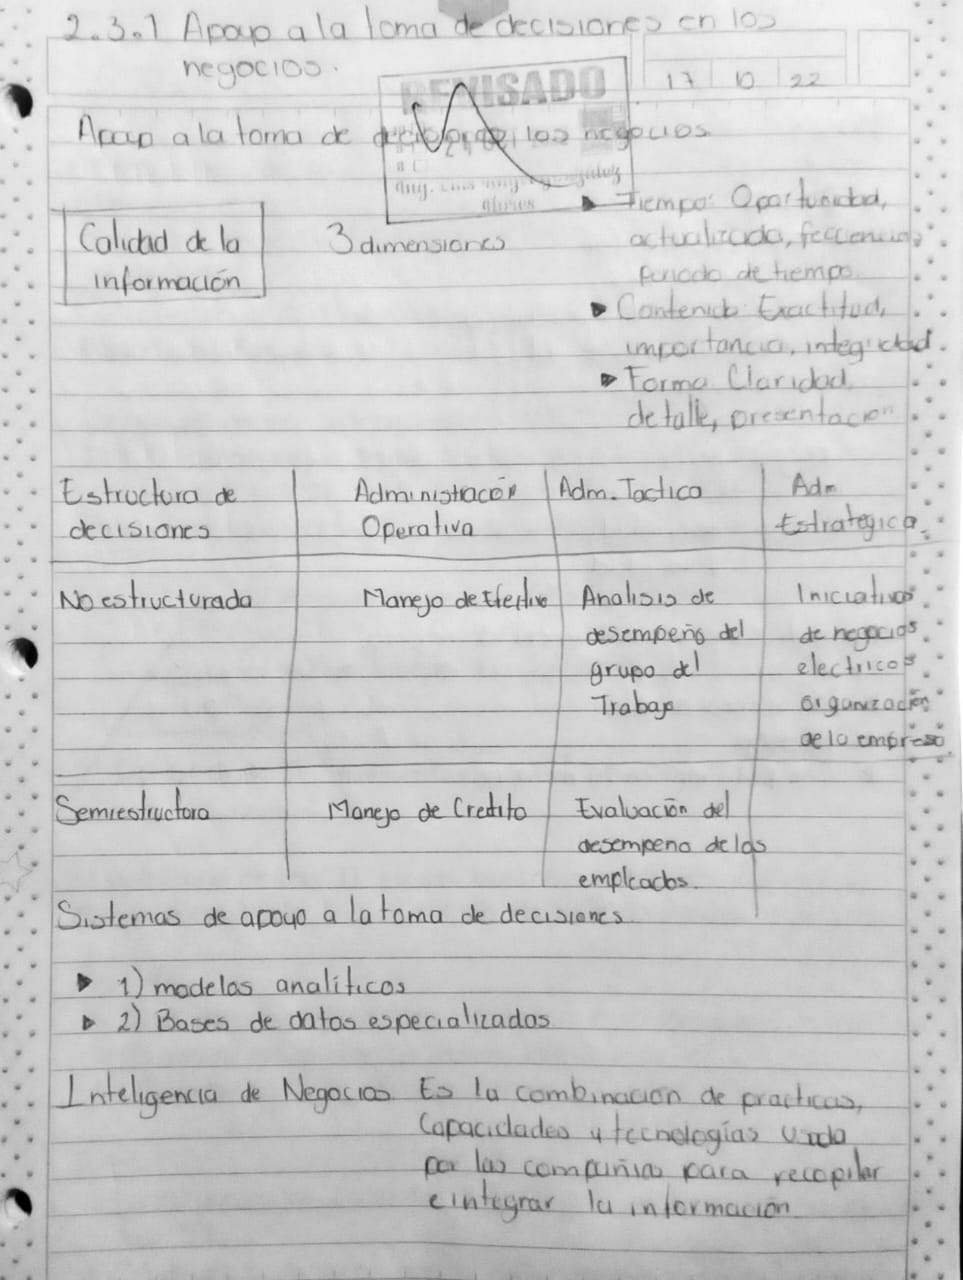 2.3.1 Apoyo a la toma de decisiones en los
negocios.
17 10 22
REVISADO
Apoyo a la toma de los negocios
Calidad de la
información
3 dimensiones
Tiempo: Oportunidad,
actualizada,
periodo de tiempo.
Contenido: Exactitud,
importancia, integridad.
Forma Claridad,
detalle, presentacion
Estructura de
decisiones
Administración
Operativa
Adm. Tactico
Adm
Estrategica.
No estructurada
Manejo de Efectivo
Analisis de
desempeño del
grupo del
Trabajo
Iniciativas
de negocios
electricos
organización
de la empresa
Semiestructora
Manejo de Credito
Evaluación del
desempeno de los
empleados.
Sistemas de apoyo a la toma de decisiones
1) modelos analíticos
2) Bases de datos especializados
Inteligencia de Negocios Es la combinacion de practicas,
Capacidades y tecnologías usada
por las compañias para recopilar
e integrar la información